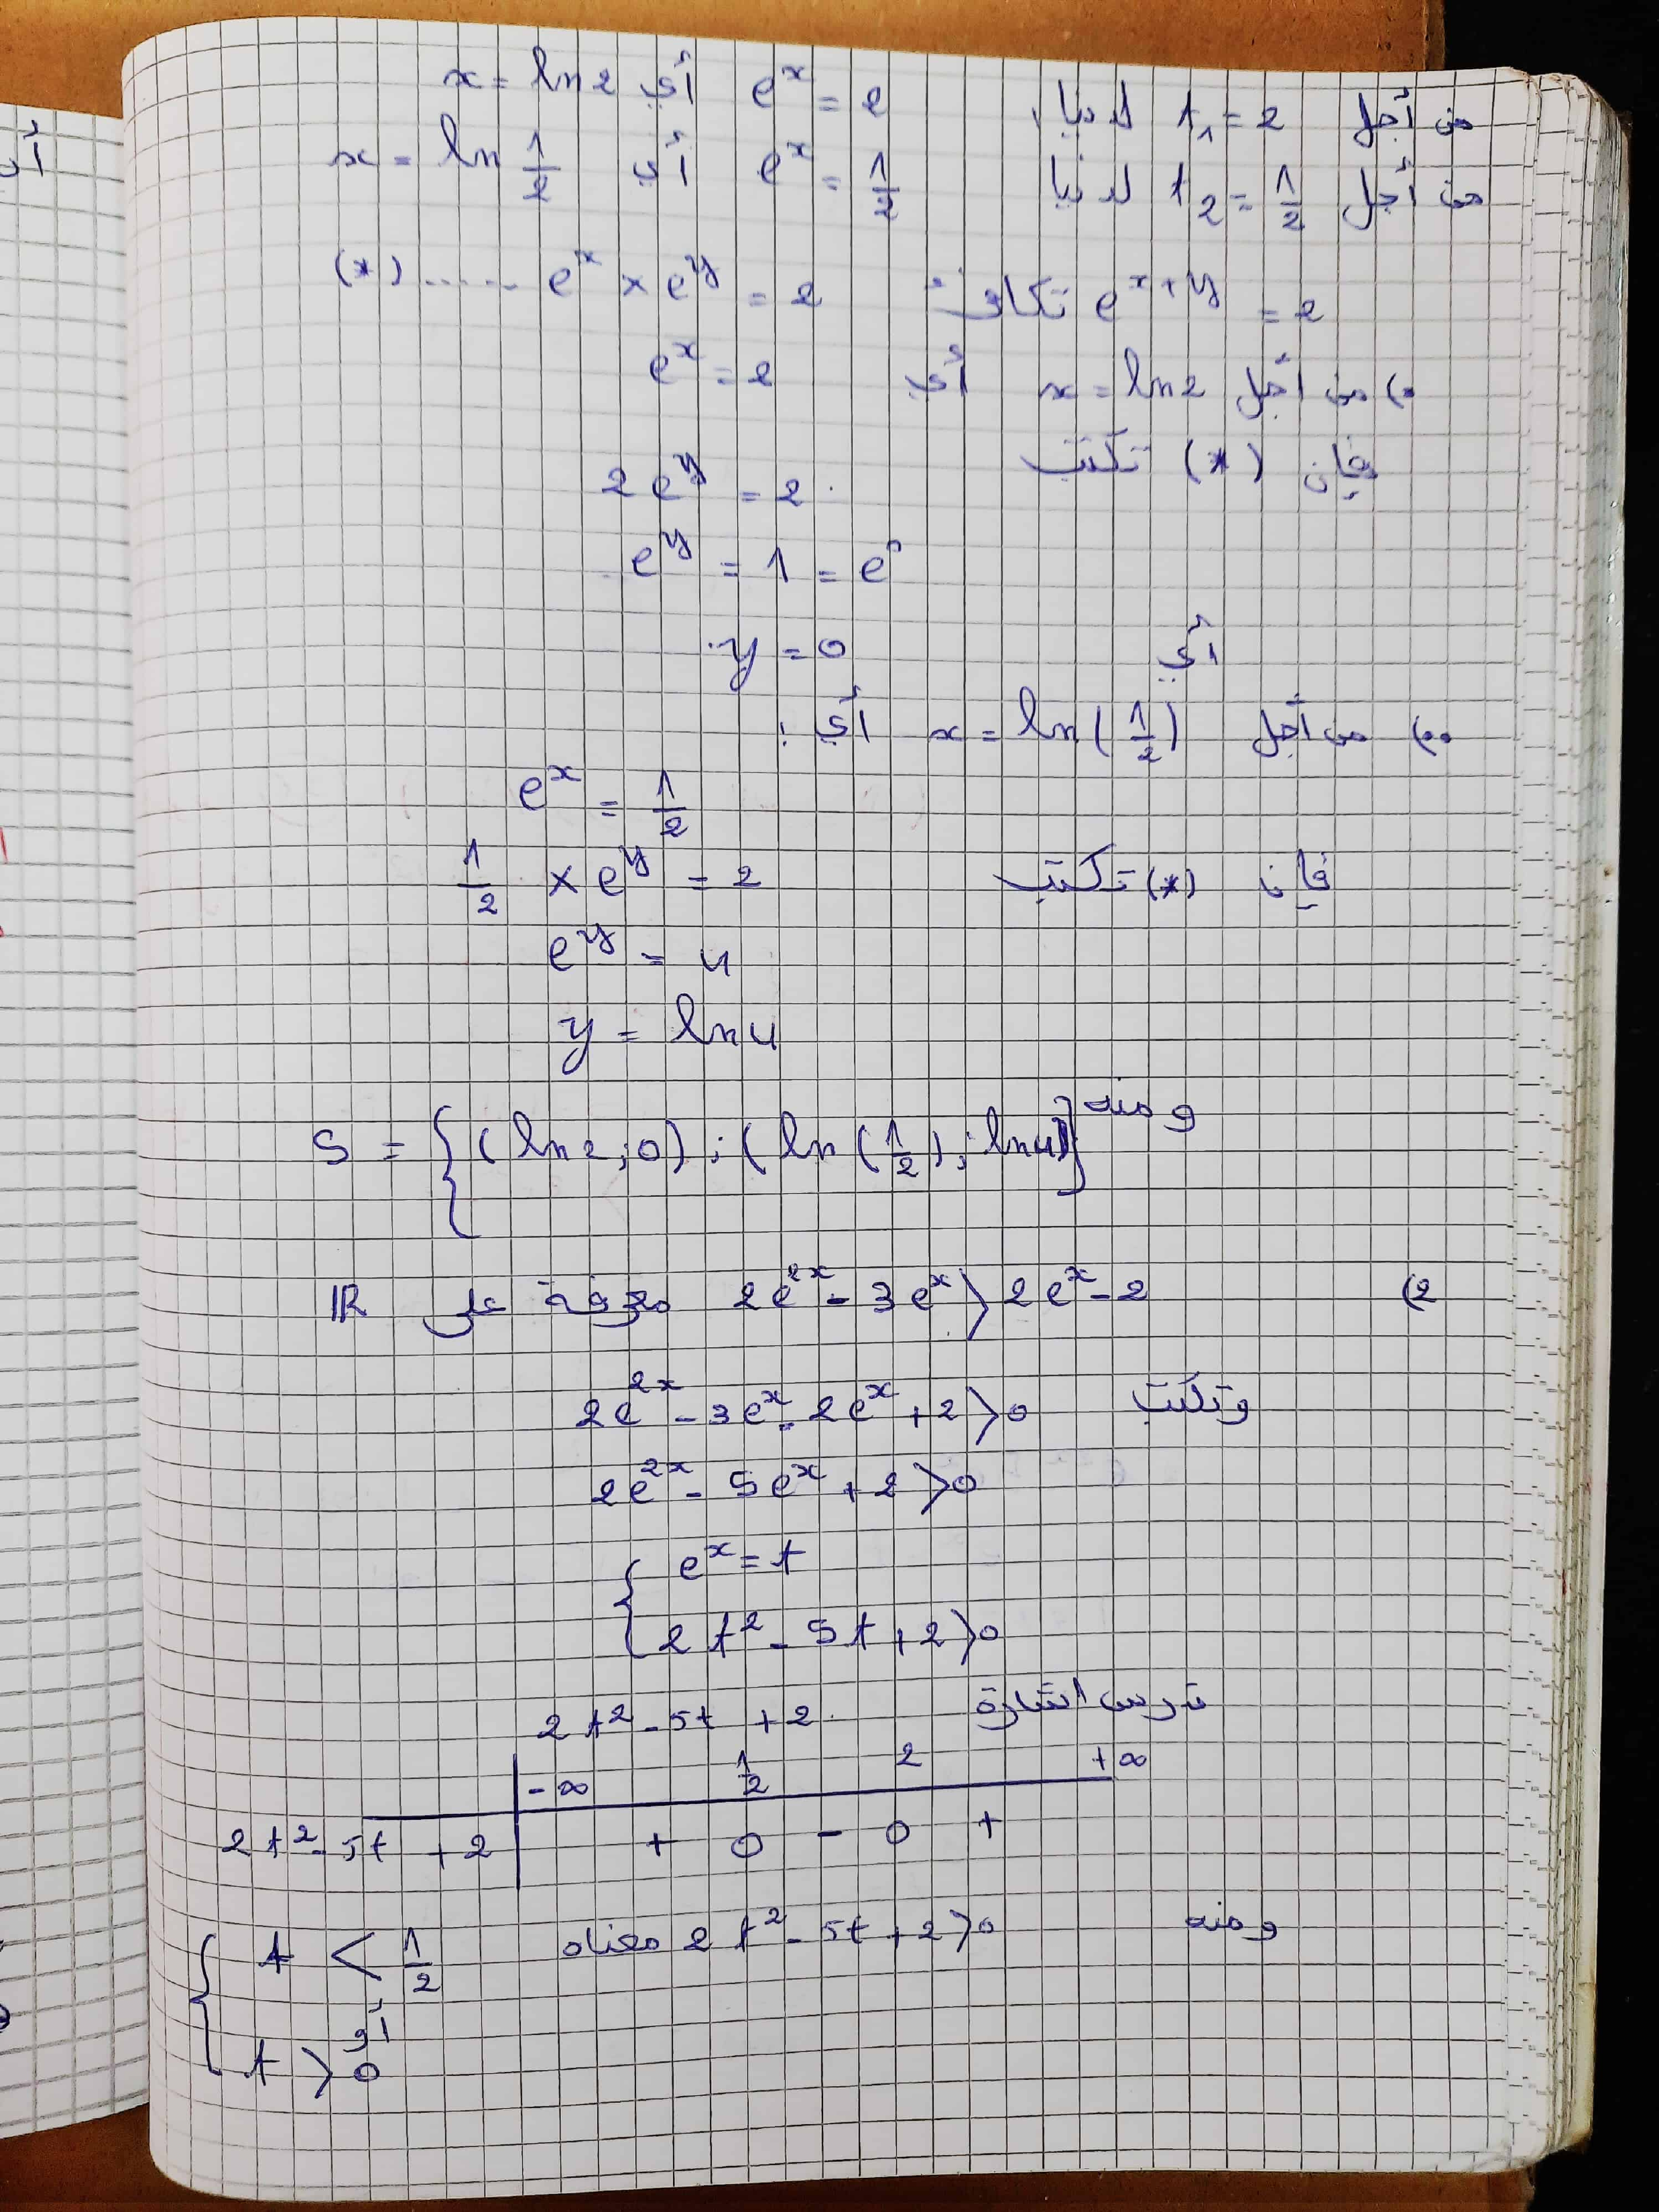 من أجل t₁ = 2 لدينا e^x = 2 أي x = ln 2
من أجل t₂ = 1/2 لدينا e^x = 1/2 أي x = ln 1/2
e^{x+y} = 2 تكافئ e^x × e^y = 2 ...... (*)
•) من أجل x = ln 2 أي e^x = 2
فإن (*) تكتب
2e^y = 2
e^y = 1 = e^0
أي y = 0
••) من أجل x = ln(1/2) أي :
e^x = 1/2
فإن (*) تكتب 1/2 × e^y = 2
e^y = 4
y = ln 4
ومنه S = {(ln 2 ; 0) ; (ln(1/2) ; ln 4)}
2) 2e^{2x} - 3e^x > 2e^x - 2 معرفة على IR
وتكتب 2e^{2x} - 3e^x - 2e^x + 2 > 0
2e^{2x} - 5e^x + 2 > 0
{ e^x = t
2t² - 5t + 2 > 0
ندرس اشارة 2t² - 5t + 2
-∞ 1/2 2 +∞
2t² - 5t + 2 + 0 - 0 +
ومنه 2t² - 5t + 2 > 0 معناه { t < 1/2
أو
t > 0